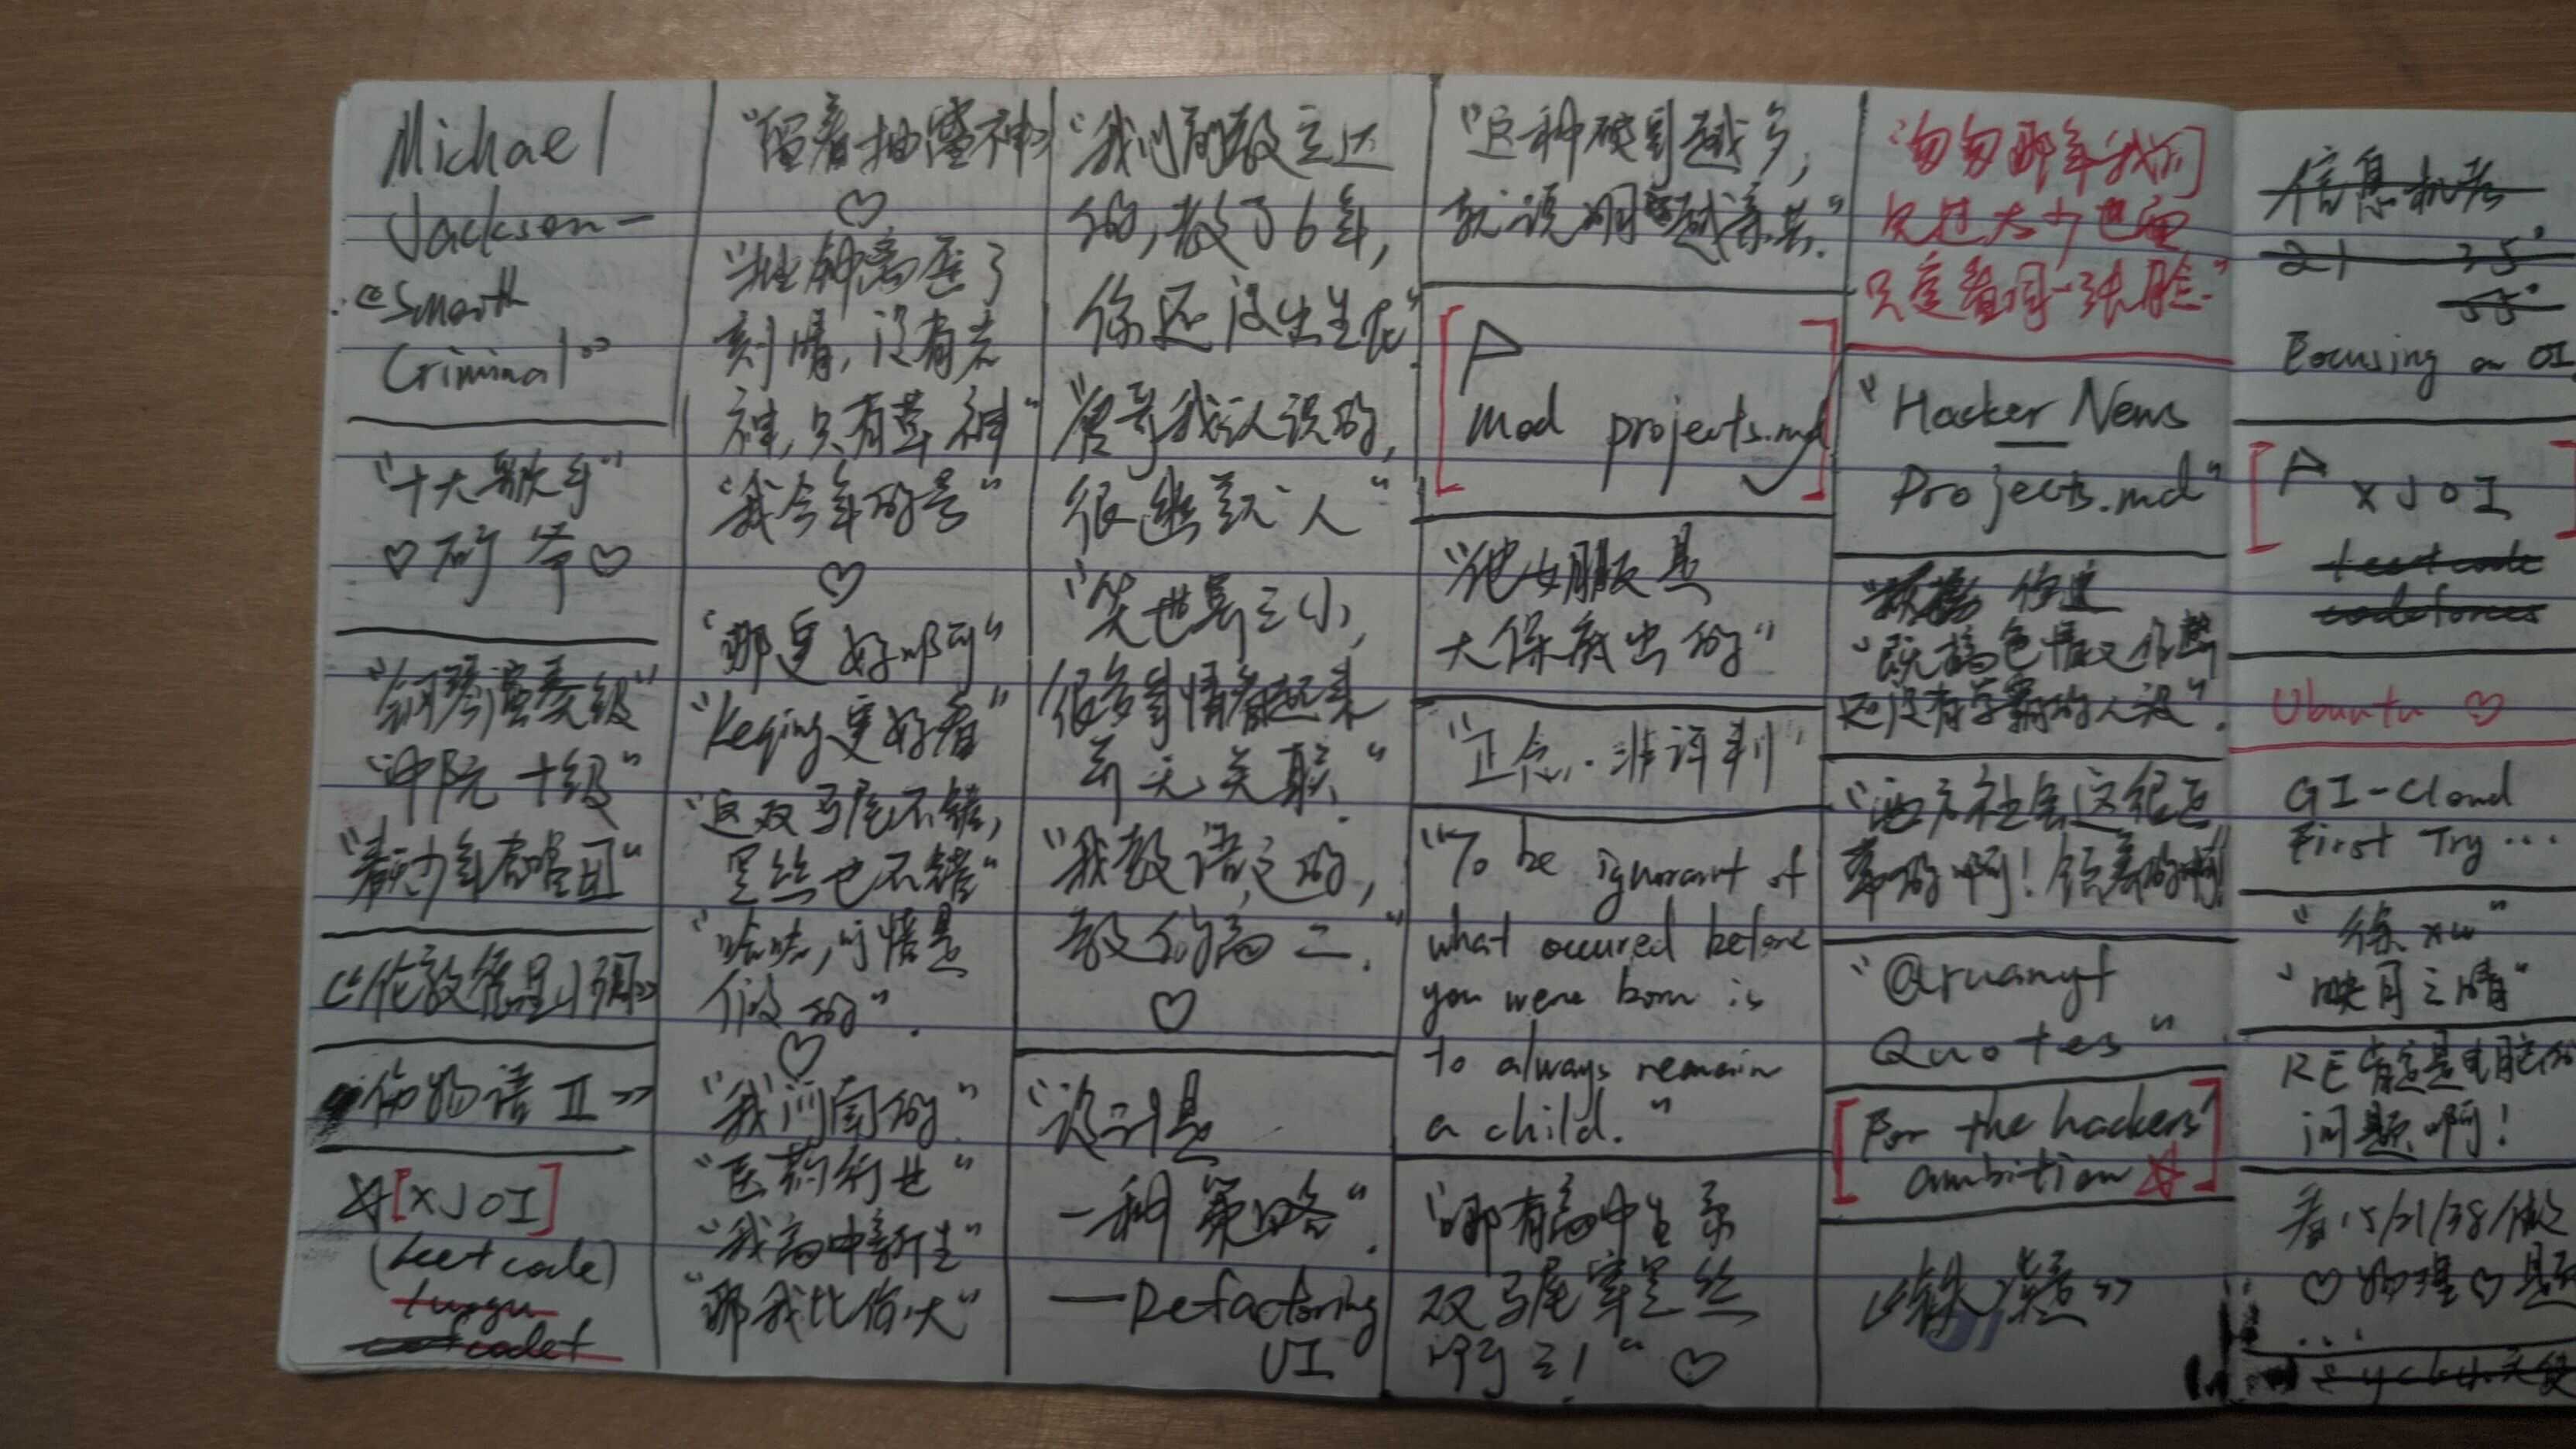 Michael
Jackson-
《Smooth
Criminal》
"十大歌手"
♡ ♡
"钢琴演奏级"
"中阮十级"
《伦敦 小调》
物语 II》
☆[XJOI]
(Leetcode)
luogu
"留着抽雷神"
♡
钟离歪了
刻晴,没有岩
神,只有草神"
"我今年的号"
♡
"那更好啊"
"Keqing更好看"
"这双马尾不错,
黑丝也不错"
"哈哈,可惜是
假的".
♡
"我 的."
"医药行业"
"我高中新生"
"那我比你大"
的,教了6年,
你还没出生在"
我认识的,
很幽默 人"
"笑世界之小,
很多事情看起来
无关联."
"我教语文的,
教的高二."
♡
"设计是
一种策略".
—Refactoring
UI
"这种 越多,
就说明
[P
mod projects.md]
"他女朋友是
大保底出的"
"正念·非评判"
"To be ignorant of
what occured before
you were born is
to always remain
a child."
"哪有高中生系
双马尾穿黑丝
♡
"匆匆那年我们
见过太少世面
只爱看同一张脸"
"Hacker News
Projects.md"
"既搞色情又
还没有学霸的人设".
"西方社会这很
"@ruanyf
Quotes"
[For the hackers'
ambition☆]
信息
21 35'
55'
Focusing on OI
[P XJOI]
leetcode
codeforces
Ubuntu ♡
GI-Cloud
First Try...
"徐xw"
"映月之晴"
RE 是电脑的
问题啊!
看15/21/38/做
♡物理♡题
...